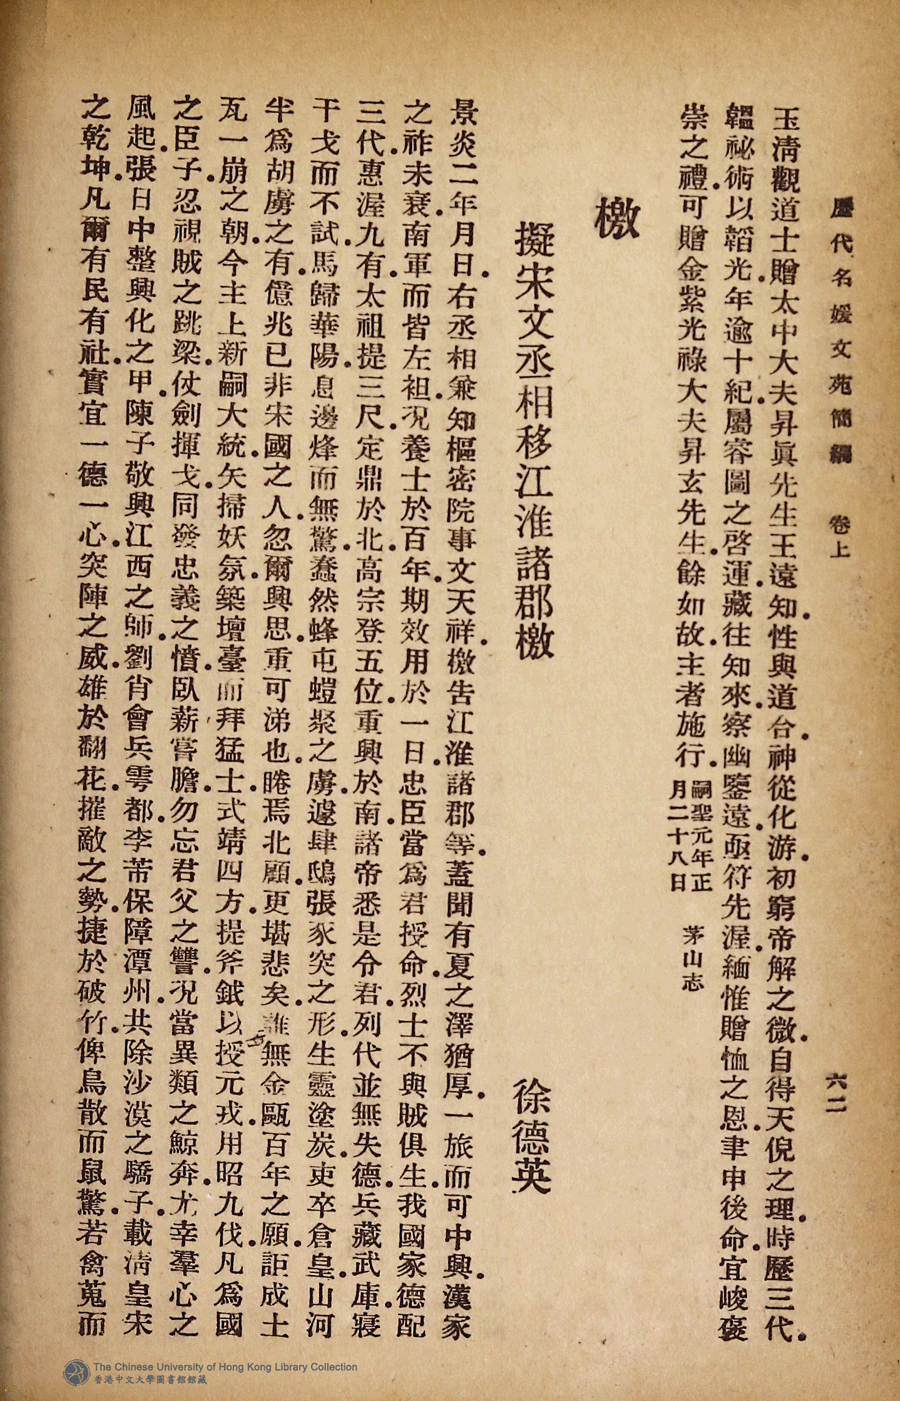 歷代名媛文苑簡編　卷上　六二
玉清觀道士贈太中大夫昇眞先生王遠知性與道合神從化游初窮帝解之微自得天倪之理時歷三代
韞祕術以韜光年逾十紀屬睿圖之啓運藏往知來察幽鑒遠亟符先渥緬惟贈恤之恩聿申後命宜峻褒
崇之禮可贈金紫光祿大夫昇玄先生餘如故主者施行嗣聖元年正月二十八日　茅山志
檄
擬宋文丞相移江淮諸郡檄　徐德英
景炎二年月日右丞相兼知樞密院事文天祥檄吿江淮諸郡等蓋聞有夏之澤猶厚一旅而可中興漢家
之祚未衰南軍而皆左袒況養士於百年期效用於一日忠臣當爲君授命烈士不與賊俱生我國家德配
三代惠渥九有太祖提三尺定鼎於北高宗登五位重興於南諸帝悉是令君列代並無失德兵藏武庫寢
干戈而不試馬歸華陽息邊烽而無驚蠢然蜂屯螘聚之虜遽肆鴟張豕突之形生靈塗炭吏卒倉皇山河
半爲胡虜之有億兆已非宋國之人忽爾興思重可涕也睠焉北顧更堪悲矣誰無金甌百年之願詎成土
瓦一崩之朝今主上新嗣大統矢掃妖氛築壇臺而拜猛士式靖四方提斧鉞以授元戎用昭九伐凡爲國
之臣子忍視賊之跳梁仗劍揮戈同發忠義之憤臥薪嘗膽勿忘君父之讐況當異類之鯨奔尤幸羣心之
風起張日中整興化之甲陳子敬興江西之師劉肖會兵雩都李芾保障潭州共除沙漠之驕子載淸皇宋
之乾坤凡爾有民有社實宜一德一心突陣之威雄於翻花摧敵之勢捷於破竹俾鳥散而鼠驚若禽蒐而
The Chinese University of Hong Kong Library Collection
香港中文大學圖書館館藏